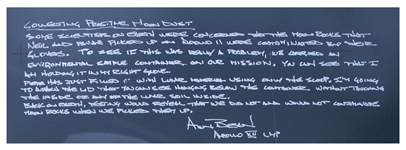 COLLECTING PRISTINE MOON DUST
SOME SCIENTISTS ON EARTH WERE CONCERNED THAT THE MOON ROCKS THAT
NEIL AND BUZZ PICKED UP ON APOLLO 11 WERE CONTAMINATED BY THEIR
GLOVES. TO SEE IF THIS WAS REALLY A PROBLEM, WE CARRIED AN
ENVIRONMENTAL SAMPLE CONTAINER ON OUR MISSION. YOU CAN SEE THAT I
AM HOLDING IT IN MY RIGHT GLOVE.
PETE HAS JUST FILLED IT WITH LUNAR MATERIAL USING ONLY THE SCOOP. I'M GOING
TO THE LID THAT YOU CAN SEE HANGING BELOW THE CONTAINER WITHOUT TOUCHING
THE INSIDE OR ANY OF THE LUNAR SOIL INSIDE.
BACK ON EARTH, TESTING WOULD REVEAL THAT WE DID NOT AND WOULD NOT CONTAMINATE
MOON ROCKS WHEN WE PICKED THEM UP.
ALAN BEAN
APOLLO XII LMP